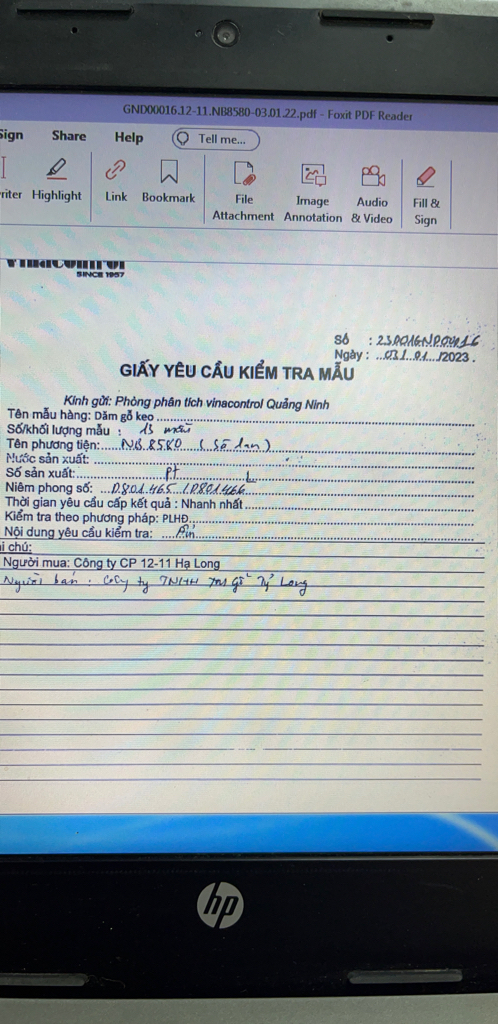 GND00016.12-11.NB8580-03.01.22.pdf - Foxit PDF Reader
Sign Share Help Tell me...
riter Highlight Link Bookmark File Attachment Image Annotation Audio & Video Fill & Sign
vinacontrol
SINCE 1957
Số :
Ngày : 03/.01.../2023.
GIẤY YÊU CẦU KIỂM TRA MẪU
Kính gửi: Phòng phân tích vinacontrol Quảng Ninh
Tên mẫu hàng: Dăm gỗ keo
Số/khối lượng mẫu : 13 mẫu
Tên phương tiện: NB 8580 (Sà lan)
Nước sản xuất:
Số sản xuất:
Niêm phong số: D801465 / D801466
Thời gian yêu cầu cấp kết quả : Nhanh nhất
Kiểm tra theo phương pháp: PLHĐ
Nội dung yêu cầu kiểm tra:
i chú:
Người mua: Công ty CP 12-11 Hạ Long
Người bán : Công ty TNHH TM Gỗ Tỷ Long
hp